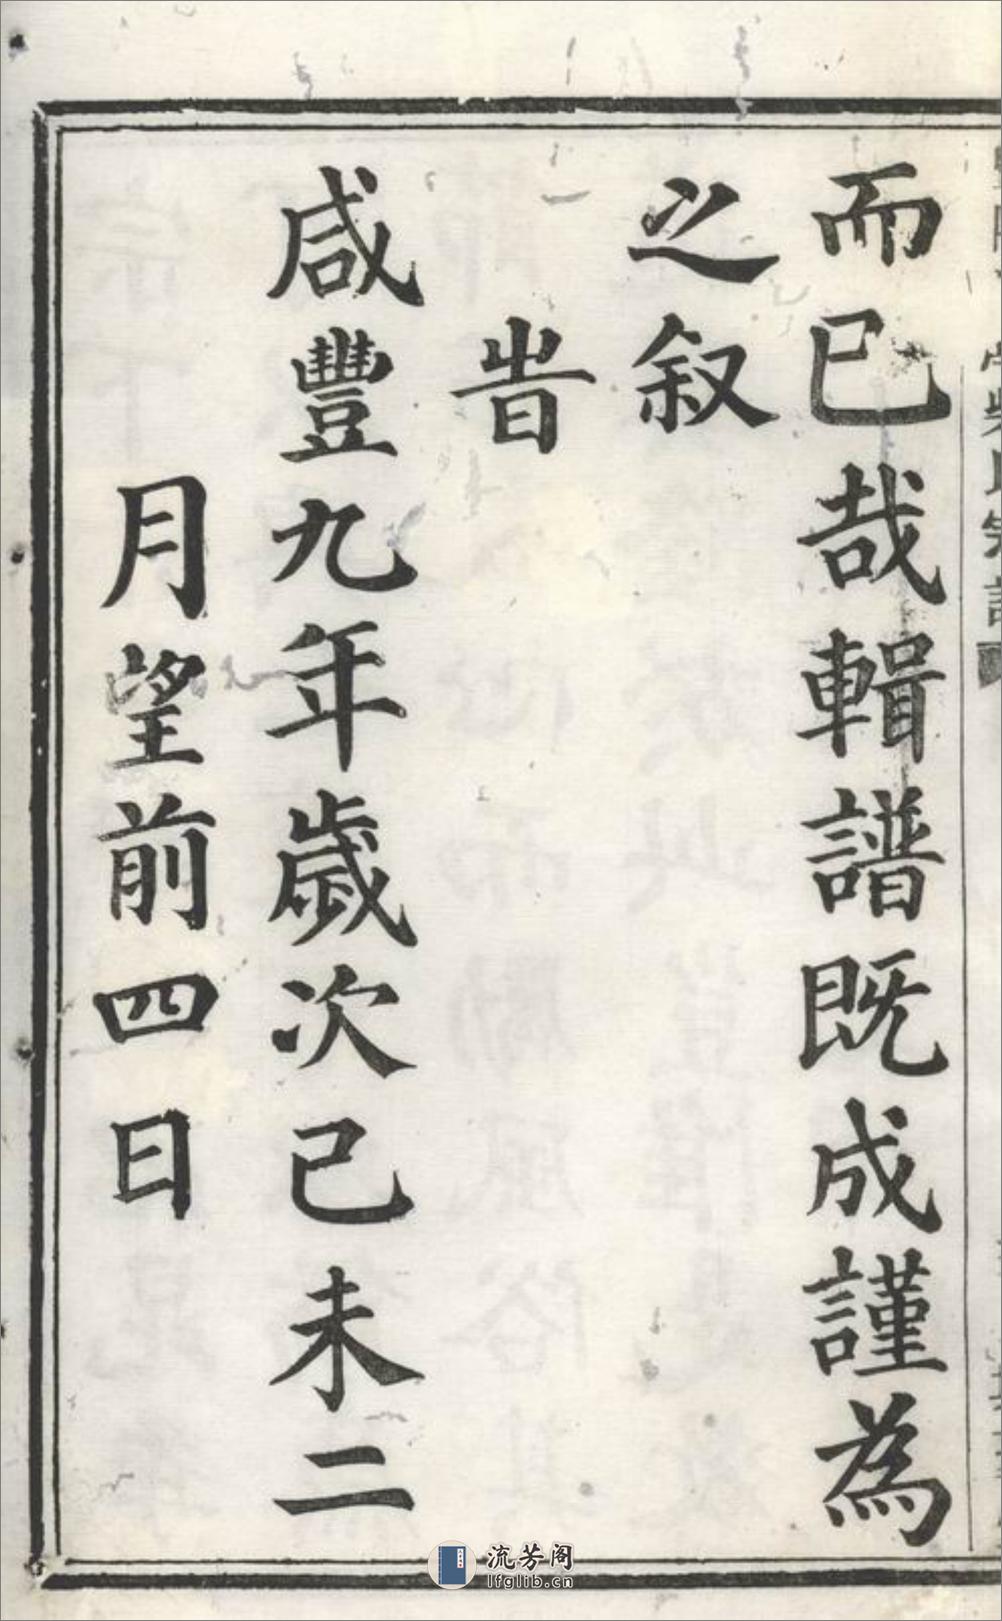 而已哉輯譜既成謹為
之叙
旹
咸豐九年歲次己未二
月望前四日
柴氏宗譜
流芳阁
lfglib.cn